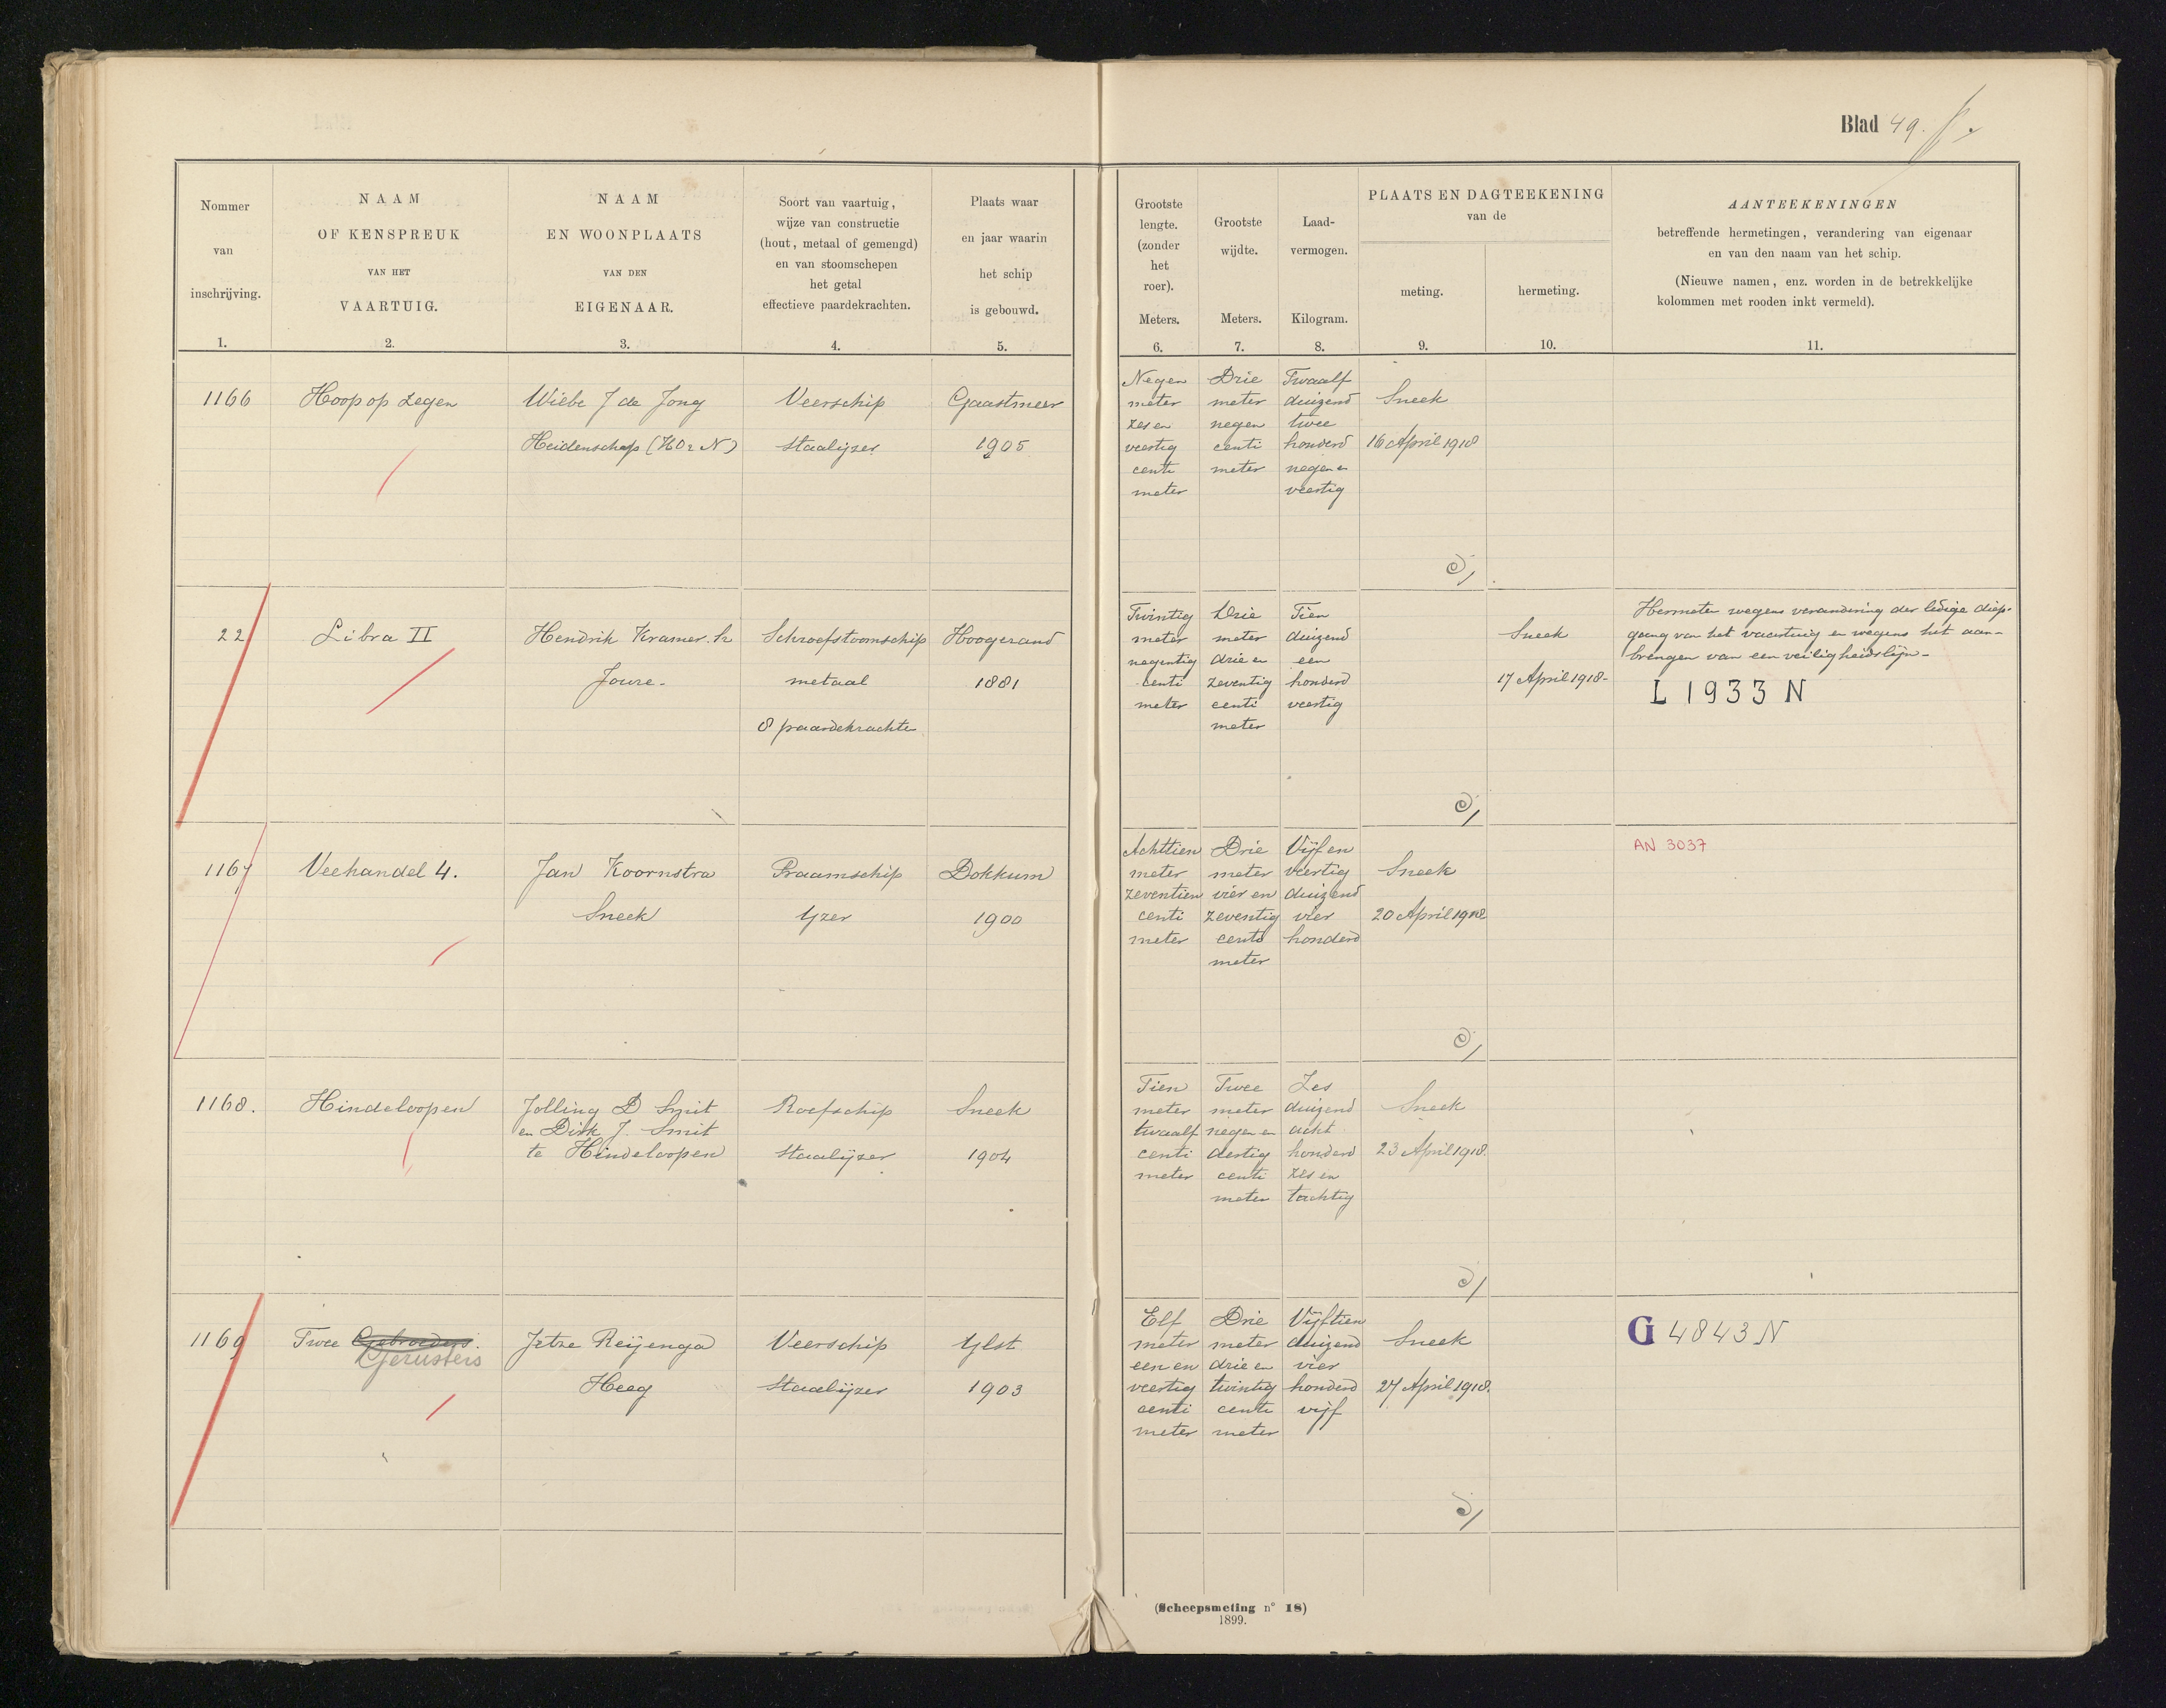 Blad 49.
Nommer
van
inschrijving.
1.
NAAM
OF KENSPREUK
VAN HET
VAARTUIG.
2.
NAAM
EN WOONPLAATS
VAN DEN
EIGENAAR.
3.
Soort van vaartuig,
wijze van constructie
(hout, metaal of gemengd)
en van stoomschepen
het getal
effectieve paardekrachten.
4.
Plaats waar
en jaar waarin
het schip
is gebouwd.
5.
Grootste
lengte.
(zonder
het
roer).
Meters.
6.
Grootste
wijdte.
Meters.
7.
Laad-
vermogen.
Kilogram.
8.
PLAATS EN DAGTEEKENING
van de
meting.
9.
hermeting.
10.
AANTEEKENINGEN
betreffende hermetingen, verandering van eigenaar
en van den naam van het schip.
(Nieuwe namen, enz. worden in de betrekkelijke
kolommen met rooden inkt vermeld).
11.
1166
Hoop op zegen
Wiebe J de Jong
Heidenschap (HO & N)
Veerschip
Staalijzer
Gaastmeer
1905
Negen
meter
zes en
veertig
centi
meter
Drie
meter
negen
centi
meter
Twaalf
duizend
twee
honderd
negen en
veertig
Sneek
16 April 1918
22
Libra II
Hendrik Kramer
Joure
Schroefstoomschip
metaal
8 paardekrachten
Hoogezand
1881
Twintig
meter
negentig
centi
meter
Drie
meter
drie en
zeventig
centi
meter
Tien
duizend
een
honderd
veertig
Sneek
17 April 1918-
Hermeten wegens verandering der ledige diep-
gang van het vaartuig en wegens het aan-
brengen van een veiligheidslijn-
L 1933 N
1167
Veehandel 4.
Jan Koornstra
Sneek
Praamschip
Yzer
Dokkum
1900
Achttien
meter
zeventien
centi
meter
Drie
meter
vier en
zeventig
centi
meter
Vijf en
veertig
duizend
vier
honderd
Sneek
20 April 1918
AN 3037
1168.
Hindeloopen
Jolling D Smit
en Dirk J. Smit
te Hindeloopen
Roefschip
Staalijzer
Sneek
1904
Tien
meter
twaalf
centi
meter
Twee
meter
negen en
dertig
centi
meter
Zes
duizend
acht
honderd
zes en
tachtig
Sneek
23 April 1918.
1169
Twee Gebroeders.
Gezusters
Jetze Reijenga
Heeg
Veerschip
Staalijzer
Ylst
1903
Elf
meter
een en
veertig
centi
meter
Drie
meter
drie en
twintig
centi
meter
Vijftien
duizend
vier
honderd
vijf
Sneek
27 April 1918.
G 4843 N
(Scheepsmeting n° 18)
1899.